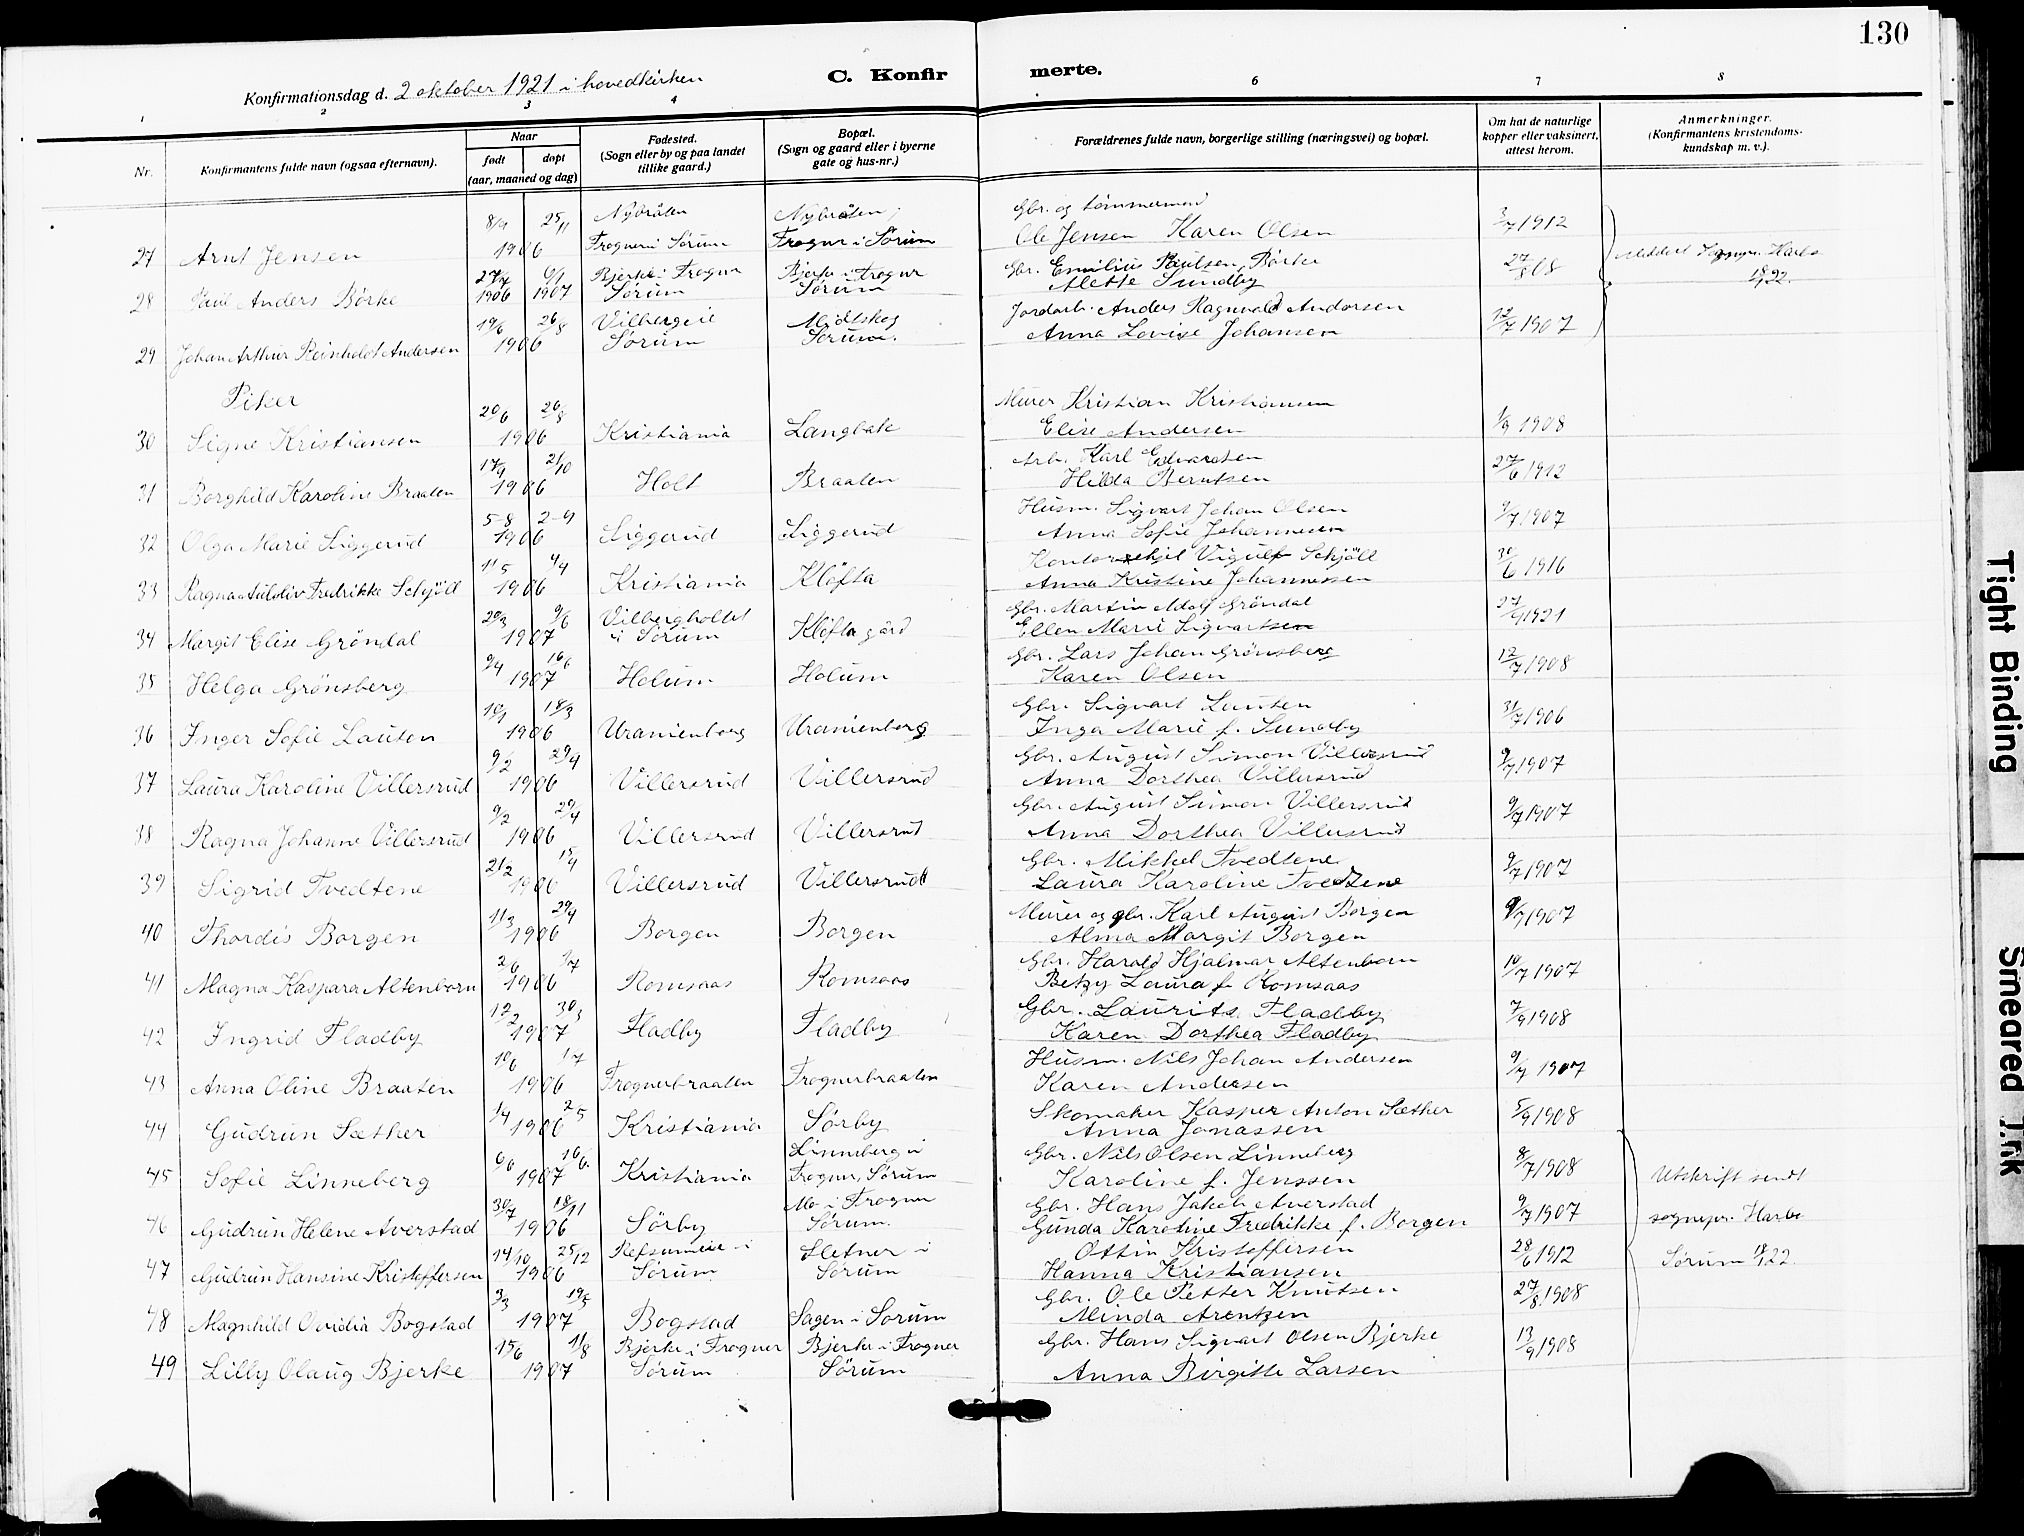 130
Konfirmationsdag d. 2 oktober 1921 i hovedkirken
C. Konfir
merte.
1 2 3 4 6 7 8
Nr.
Konfirmantens fulde navn (ogsaa efternavn).
Naar
født
døpt
(aar, maaned og dag)
Fødested.
(Sogn eller by og paa landet
tillike gaard.)
Bopæl.
(Sogn og gaard eller i byerne
gate og hus-nr.)
Forældrenes fulde navn, borgerlige stilling (næringsvei) og bopæl.
Om hat de naturlige
kopper eller vaksinert,
attest herom.
Anmerkninger.
(Konfirmantens kristendoms-
kundskap m. v.).
8/9 25/11 Nybråten Nybråten, Gbr. og tømmermand
27 Arnt Jensen 1906 Frogner i Sørum Frogner i Sørum Ole Jensen Karen Olsen 3/7 1912
27/7 6/1 Bjerke i Frogner Bjerke i Frogner Gbr. Emilius Paulsen Børke 27/8 08
28 Paul Anders Börke 1906 1907 Sørum Sørum Alette Sundby
19/6 26/8 Vilbergeie Midtskog Jordarb. Anders Ragnvald Andersen
29 Johan Arthur Reinholdt Andersen 1906 Sørum Sørum. Anna Lovise Johansen 12/7 1907
Piker
20/6 26/8 Murer Kristian Kristiansen
30 Signe Kristiansen 1906 Kristiania Langbak Elise Andersen 1/9 1908
17/9 21/10 Arb. Karl Edvardsen
31 Borghild Karoline Braaten 1906 Holt Braaten Hilda Berntsen 27/6 1912
5-8 2-9 Husm. Sigvart Johan Olsen
32 Olga Marie Liggerud 1906 Liggerud Liggerud Anna Sofie Johannesen 9/7 1907
11/5 4/9 Vigulf Schjöll
33 Ragna Fredrikke Schjöll 1906 Kristiania Kløfta Anna Kristine Johannessen 30/6 1916
20/3 9/6 Vilbergholtet Gbr. Martin Adolf Gröndal
34 Margit Elise Gröndal 1907 i Sørum Kløfta gård Ellen Marie Sigvartsen 27/9 1921
9/4 16/6 Gbr. Lars Johan Grönsberg
35 Helga Grönsberg 1907 Holum Holum Karen Olsen 12/7 1908
10/1 18/3 Gbr. Sigvart Lautsen
36 Inger Sofie Lautsen 1906 Uranienborg Uranienborg Inga Marie f. Sundby 31/7 1906
9/2 29/4 Gbr. August Simon Villersrud
37 Laura Karoline Villersrud 1906 Villersrud Villersrud Anna Dorthea Villersrud 9/7 1907
9/2 29/4 Gbr. August Simon Villersrud
38 Ragna Johanne Villersrud 1906 Villersrud Villersrud Anna Dorthea Villersrud 9/7 1907
21/2 15/4 Gbr. Mikkel Tvedtene
39 Sigrid Tvedtene 1906 Villersrud Villersrud Laura Karoline Tvedtene 9/7 1907
11/3 29/4 Murer og gbr. Karl August Borgen
40 Thordis Borgen 1906 Borgen Borgen Alma Margit Borgen 9/7 1907
2/6 1/7 Gbr. Harald Hjalmar Altenborn
41 Magna Kaspara Altenborn 1906 Romsaas Romsaas Betzy Laura f. Romsaas 10/7 1907
12/2 30/3 Gbr. Laurits Fladby
42 Ingrid Fladby 1907 Fladby Fladby Karen Dorthea Fladby 7/9 1908
10/6 1/7 Husm. Nils Johan Andersen
43 Anna Oline Braaten 1906 Frognerbraaten Frognerbraaten Karen Andersen 9/7 1907
1/4 2/5 Skomaker Kasper Anton Sæther
44 Gudrun Sæther 1906 Kristiania Sørby Anna Jonassen 5/9 1908
6/6 16/6 Linneberg i Gbr. Nils Olsen Linneberg
45 Sofie Linneberg 1907 Kristiania Frogner, Sørum Karoline f. Jenssen 8/7 1908 Utskrift sendt
30/7 18/11 Mo i Frogner Gbr. Hans Jakob Averstad
46 Gudrun Helene Averstad 1906 Sørby Sørum. Gunda Karoline Fredrikke f. Borgen 9/7 1907 sognepr. Harbo
14/10 25/12 Refsumeie i Sletner i Ottin Kristoffersen 28/6 1912
47 Gudrun Hansine Kristoffersen 1906 Sørum Sørum Hanna Kristiansen Sørum 18/1 22.
3/3 19/5 Gbr. Ole Petter Knutsen
48 Magnhild Ovidia Bogstad 1907 Bogstad Sagen i Sørum Minda Arentzen 27/8 1908
15/6 11/8 Bjerke i Frogner Bjerke i Frogner Gbr. Hans Sigvart Olsen Bjerke
49 Lilly Olaug Bjerke 1907 Sørum Sørum Anna Birgitte Larsen 13/9 1908
Tight Binding
Smeared Ink